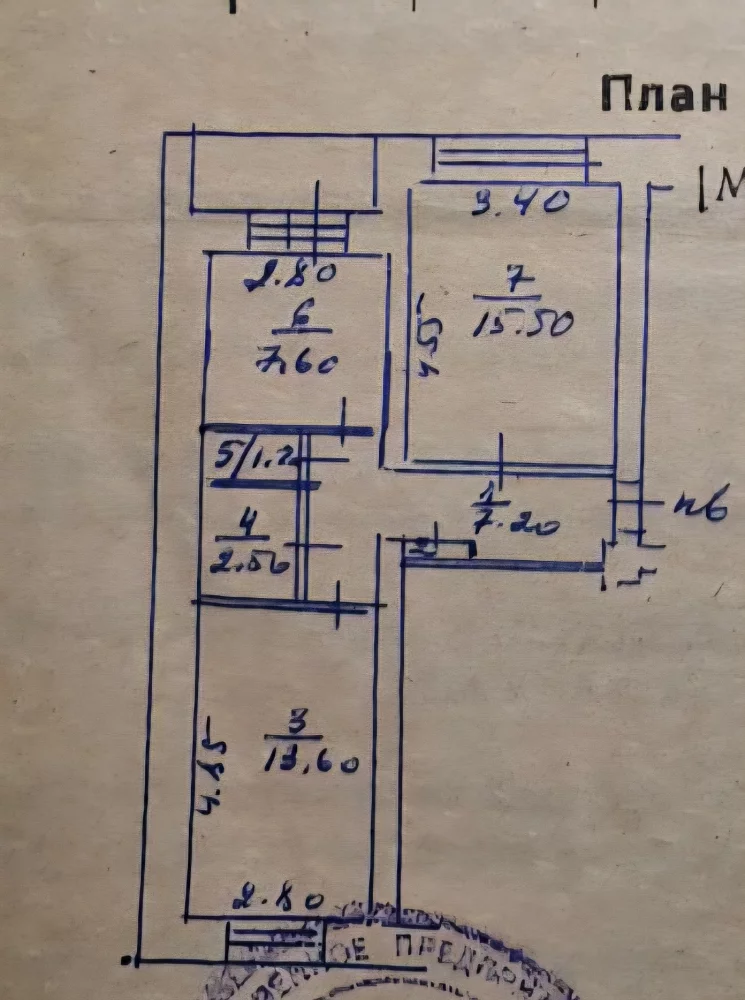 План
3.40
2.80
7
15.50
6
7.60
5/1.2
1
7.20
4
2.50
2
кв
3
13,60
4.85
2.80
НОЕ ПРЕДПРИ